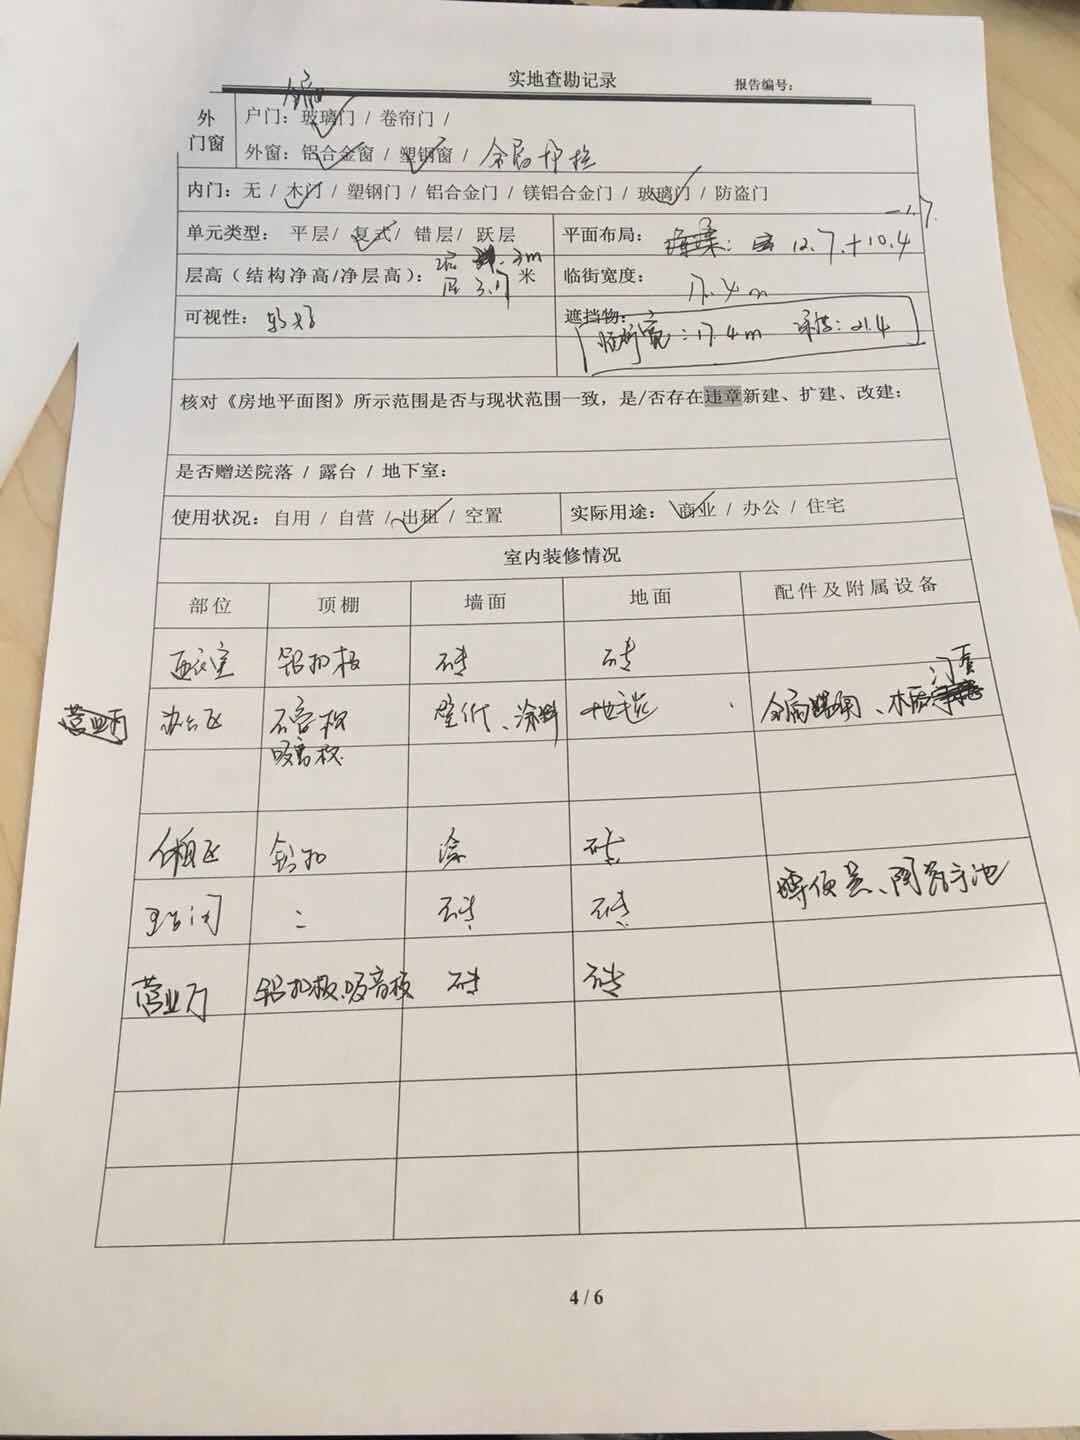 实地查勘记录 报告编号:
外门窗
金属
户门: 玻璃门 / 卷帘门 /
外窗: 铝合金窗 / 塑钢窗 / 金属护栏
内门: 无 / 木门 / 塑钢门 / 铝合金门 / 镁铝合金门 / 玻璃门 / 防盗门
单元类型: 平层/ 复式/ 错层/ 跃层 平面布局: 12.7+10.4
层高（结构净高/净层高）: 3m 米 临街宽度: 17.4m
可视性: 较好 遮挡物:
临街宽: 17.4m 深: 21.4
核对《房地平面图》所示范围是否与现状范围一致，是/否存在违章新建、扩建、改建:
是否赠送院落 / 露台 / 地下室:
使用状况: 自用 / 自营 / 出租 / 空置 实际用途: 商业 / 办公 / 住宅
室内装修情况
部位 顶棚 墙面 地面 配件及附属设备
更衣室 铝扣板 砖 砖
办公区 石膏板 壁纸、涂料 地毯 木 门套
吸音板
休息区 铝扣 涂 砖
卫生间 砖 砖 蹲便器、陶瓷手池
营业厅 铝扣板、吸音板 砖 砖
4 / 6